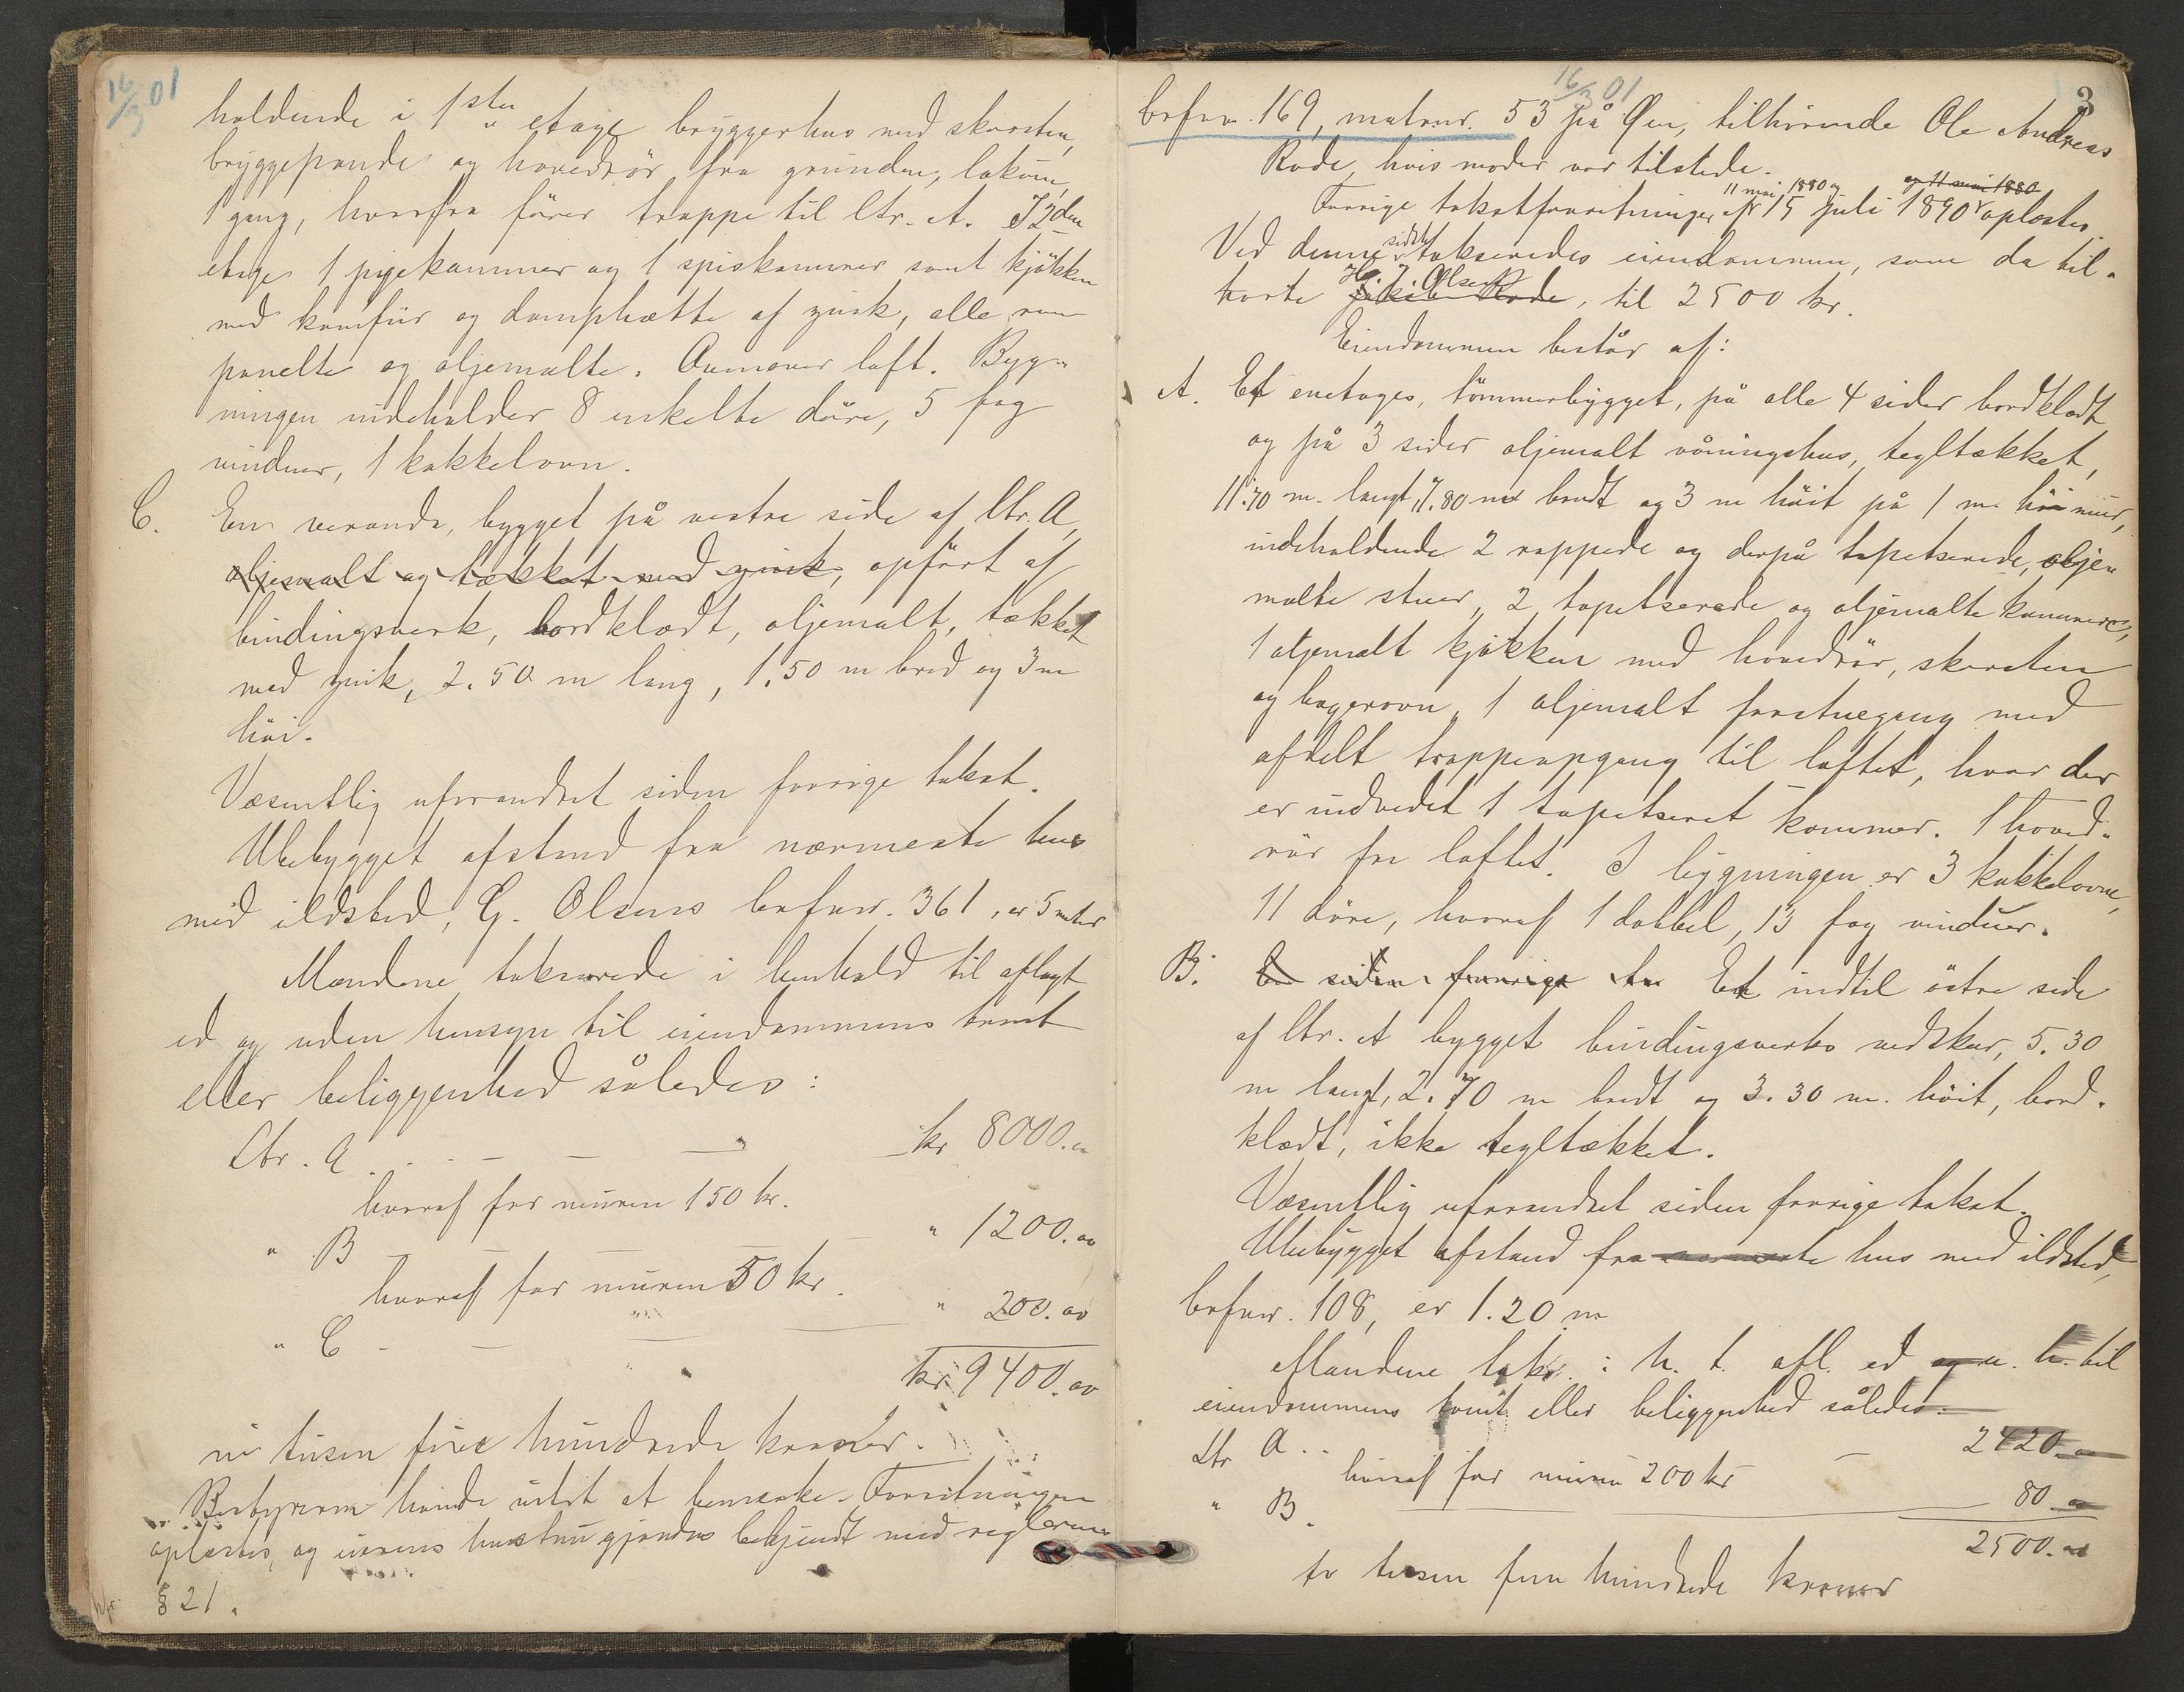 16/3 01
holdende i 1ste etage bryggerhus med skorsten,
bryggepande og hovedrör fra grunden, lokum,
1 gang, hvorfra förer trappe til ltr. A. I 2den
etage 1 pigekammer og 1 spiskammer samt kjökken
med komfür og damphætte af zink, alle rum
panelte og oljemalte. Ovenover loft. Byg-
ningen indeholder 8 enkelte döre, 5 fag
vinduer, 1 kakkelovn.
C. En veranda, bygget på vestre side af ltr. A,
oljemalt og tækket med zink, opfört af
bindingsverk, bordklædt, oljemalt, tækket
med zink, 2.50 m lang, 1.50 m bred og 3 m
höi.
Væsentlig uforandret siden forrige takst.
Ubebygget afstand fra nærmeste hus
med ildsted, G. Olsens brfnr. 361, er 5 meter
Mændene takserede i henhold til aflagt
ed og uden hensyn til eiendommens tomt
eller beliggenhed således:
Ltr. A . . . — — — kr 8000.00
hvoraf for muren 150 kr.
" B — — — — " 1200.00
hvoraf for muren 50 kr.
" C - — — — " 200.00
kr. 9400.00
ni tusen fire hundrede kroner.
Bestyreren havde intet at bemerke. Forretningen
oplæstes, og eierens hustru gjordes bekjendt med reglerne
§ 21.
16/3 01
3
brfnr. 169, matrnr. 53 på Øen, tilhörende Ole Andreas
Rode, hvis moder var tilstede.
11 mai 1880 og og 11 mai 1880
Forrige takstforretninger af 15 juli 1890 oplæstes.
Ved denne sidste takseredes eiendommen, som da til-
hörte Olsen Rode, til 2500 kr.
Eiendommen består af:
A. Et enetages, tömmerbygget, på alle 4 sider bordklædt
og på 3 sider oljemalt våningshus, tegltækket,
11.70 m. langt, 7.80 m bredt og 3 m höit på 1 m. höi mur,
indeholdende 2 rappede og derpå tapetserede, olje-
malte stuer, 2 tapetserede og oljemalte kammere,
1 oljemalt kjökken med hovedrör, skorsten
og bagerovn, 1 oljemalt forstuegang med
afdelt trappeopgang til loftet, hvor der
er indredet 1 tapetseret kammer. 1 hoved-
rör fra loftet. I bygningen er 3 kakkelovne,
11 döre, hvoraf 1 dobbel, 13 fag vinduer.
B. En siden forrige ta Et indtil östre side
af ltr. A bygget bindingsverks vedskur, 5.30
m langt, 2.70 m bredt og 3.30 m. höit, bord-
klædt, ikke tegltækket.
Væsentlig uforandret siden forrige takst.
Ubebygget afstand fra nærmeste hus med ildsted,
brfnr. 108, er 1.20 m
Mændene takr. i h. t. afl. ed og u. h. til
eiendommens tomt eller beliggenhed således.
Ltr A . . — 2420.00
hvoraf for muren 200 kr
" B. — 80.00
2500.00
to tusen fem hundrede kroner